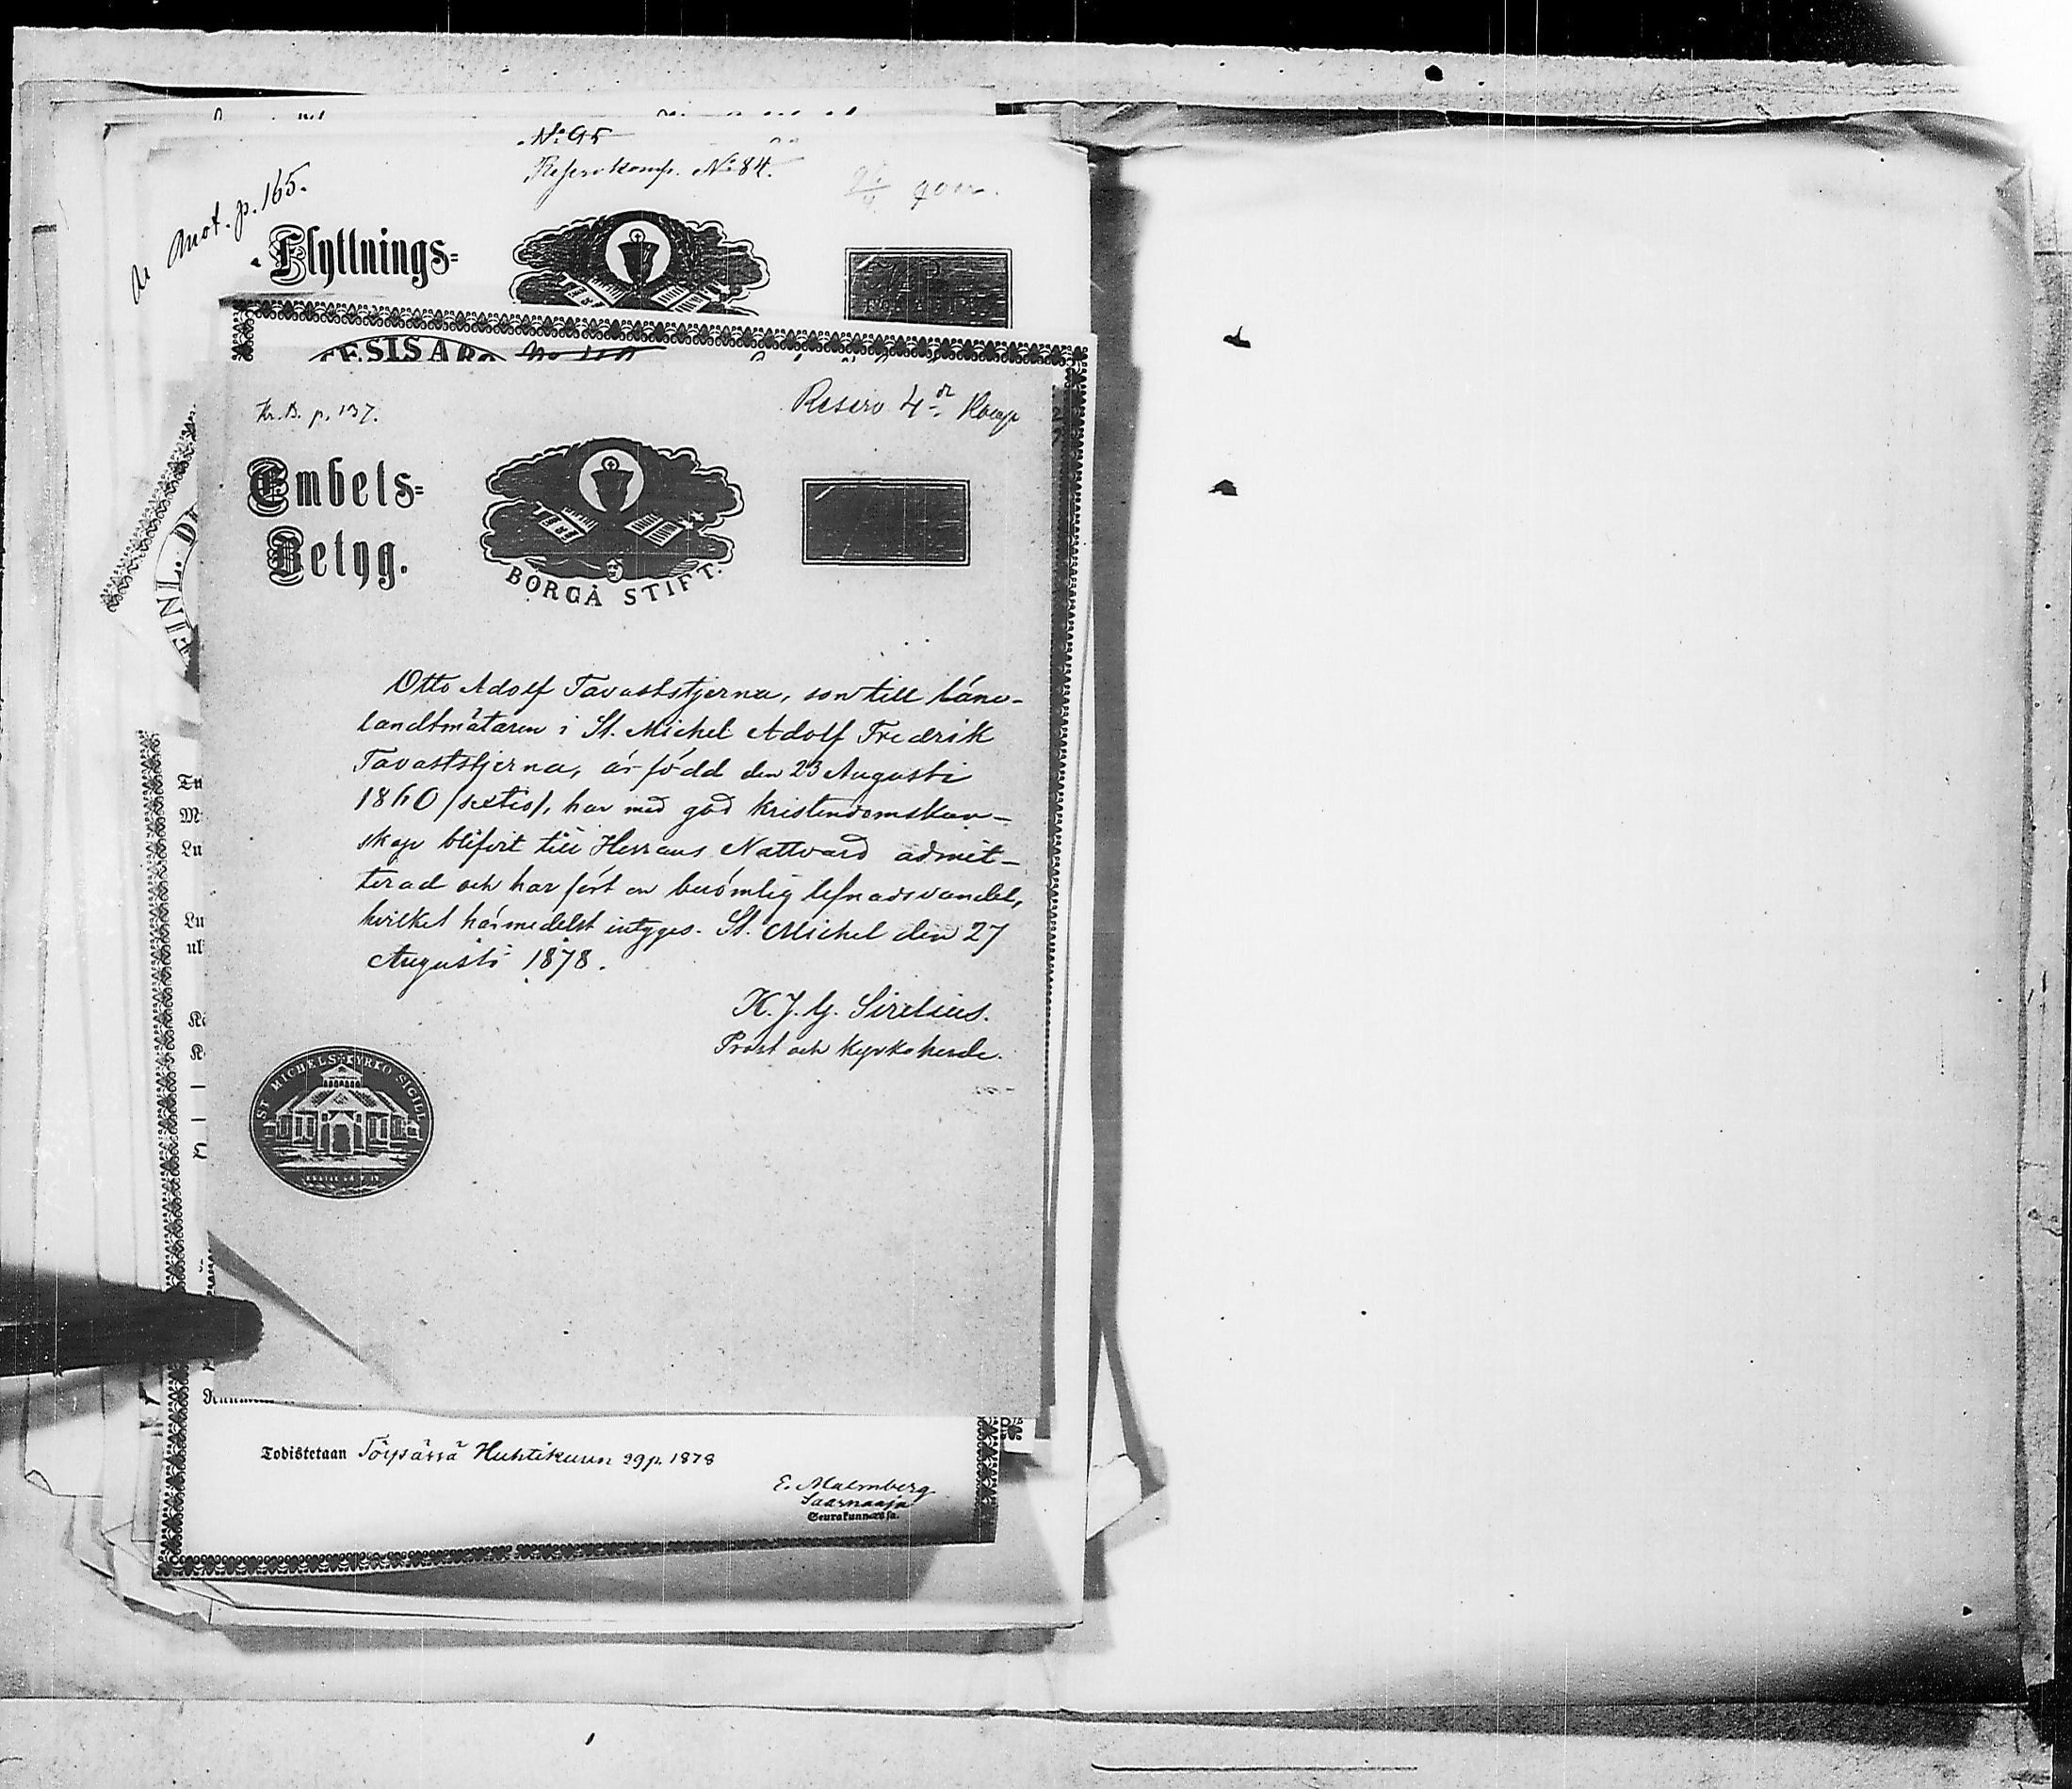 No 95
Reservkomp. No 84.
Mot. p. 165.
Flyttnings=
Kr.B. p. 137.
Reserv 4de Komp
Embets=
Betyg.
BORGÅ STIFT.
Otto Adolf Tavaststjerna, son till Läne-
landtmätaren i St. Michel Adolf Fredrik
Tavaststjerna, är född den 23 Augusti
1860 /sextio/, har med god kristendomskun-
skap blifvit till Herrans Nattvard admit-
terad och har fört en berömlig lefnadsvandel,
hvilket härmedelst intygas. St. Michel den 27
Augusti 1878.
K. J. G. Sirelius.
Prost och Kyrkoherde.
ST MICHELS KYRKO SIGILL
Todistetaan Töysässä Huhtikuun 29 p. 1878
E. Malmberg
Saarnaaja
Seurakunnassa.